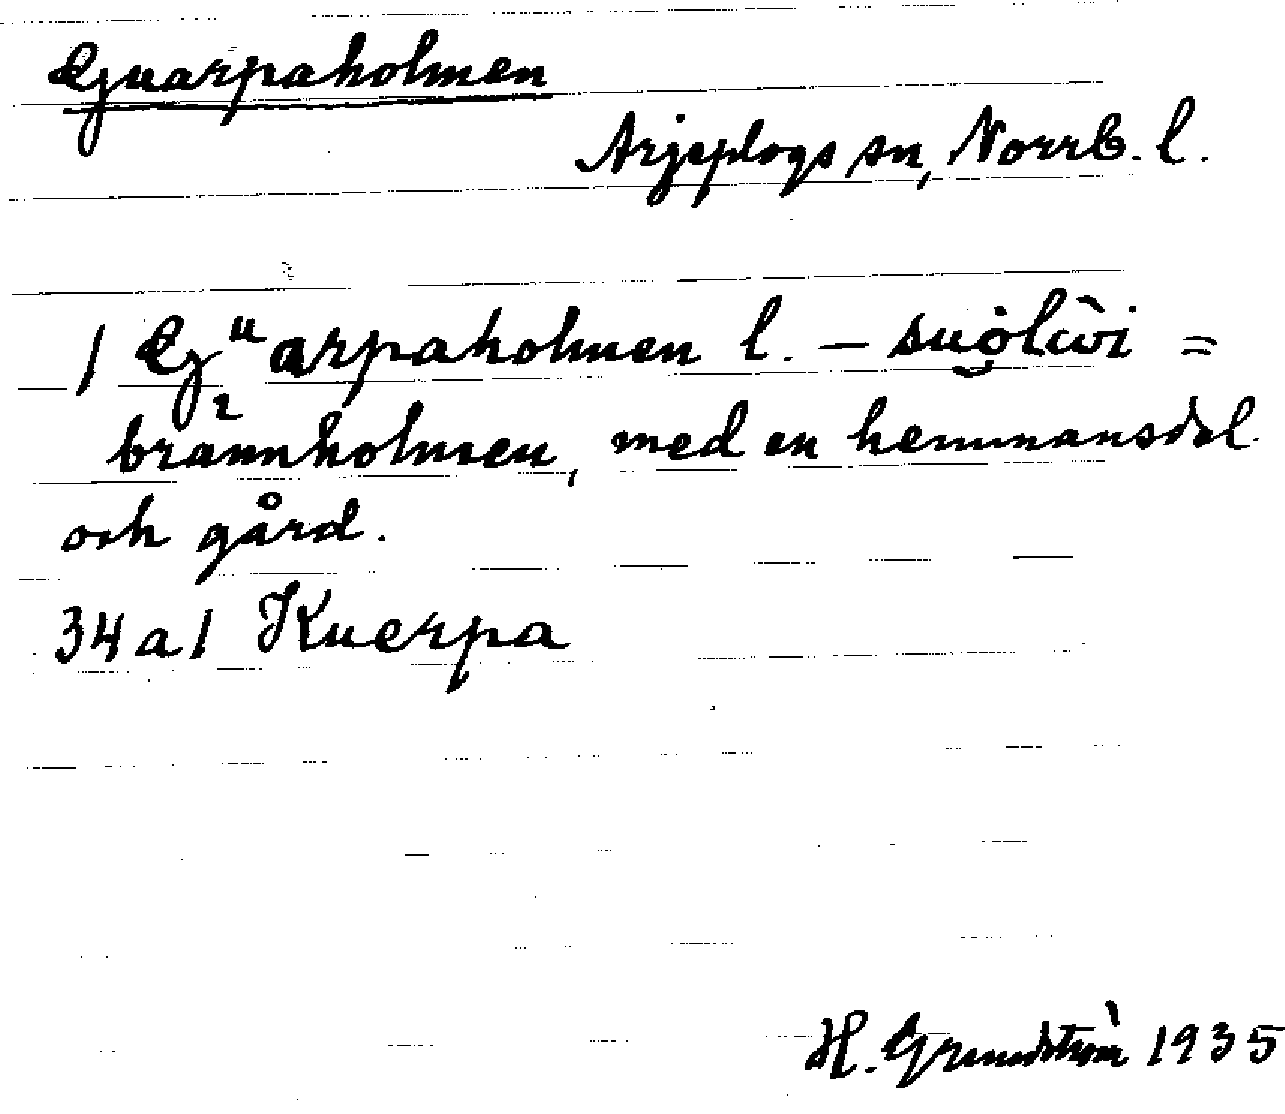 Guarpaholmen
Arjeplogs sn, Norrb. l.
1 Guarpaholmen l. – suo̯lùi =
brännholmen, med en hemmansdel
och gård.
34a1 Kuerpa
H. Grundström 1935